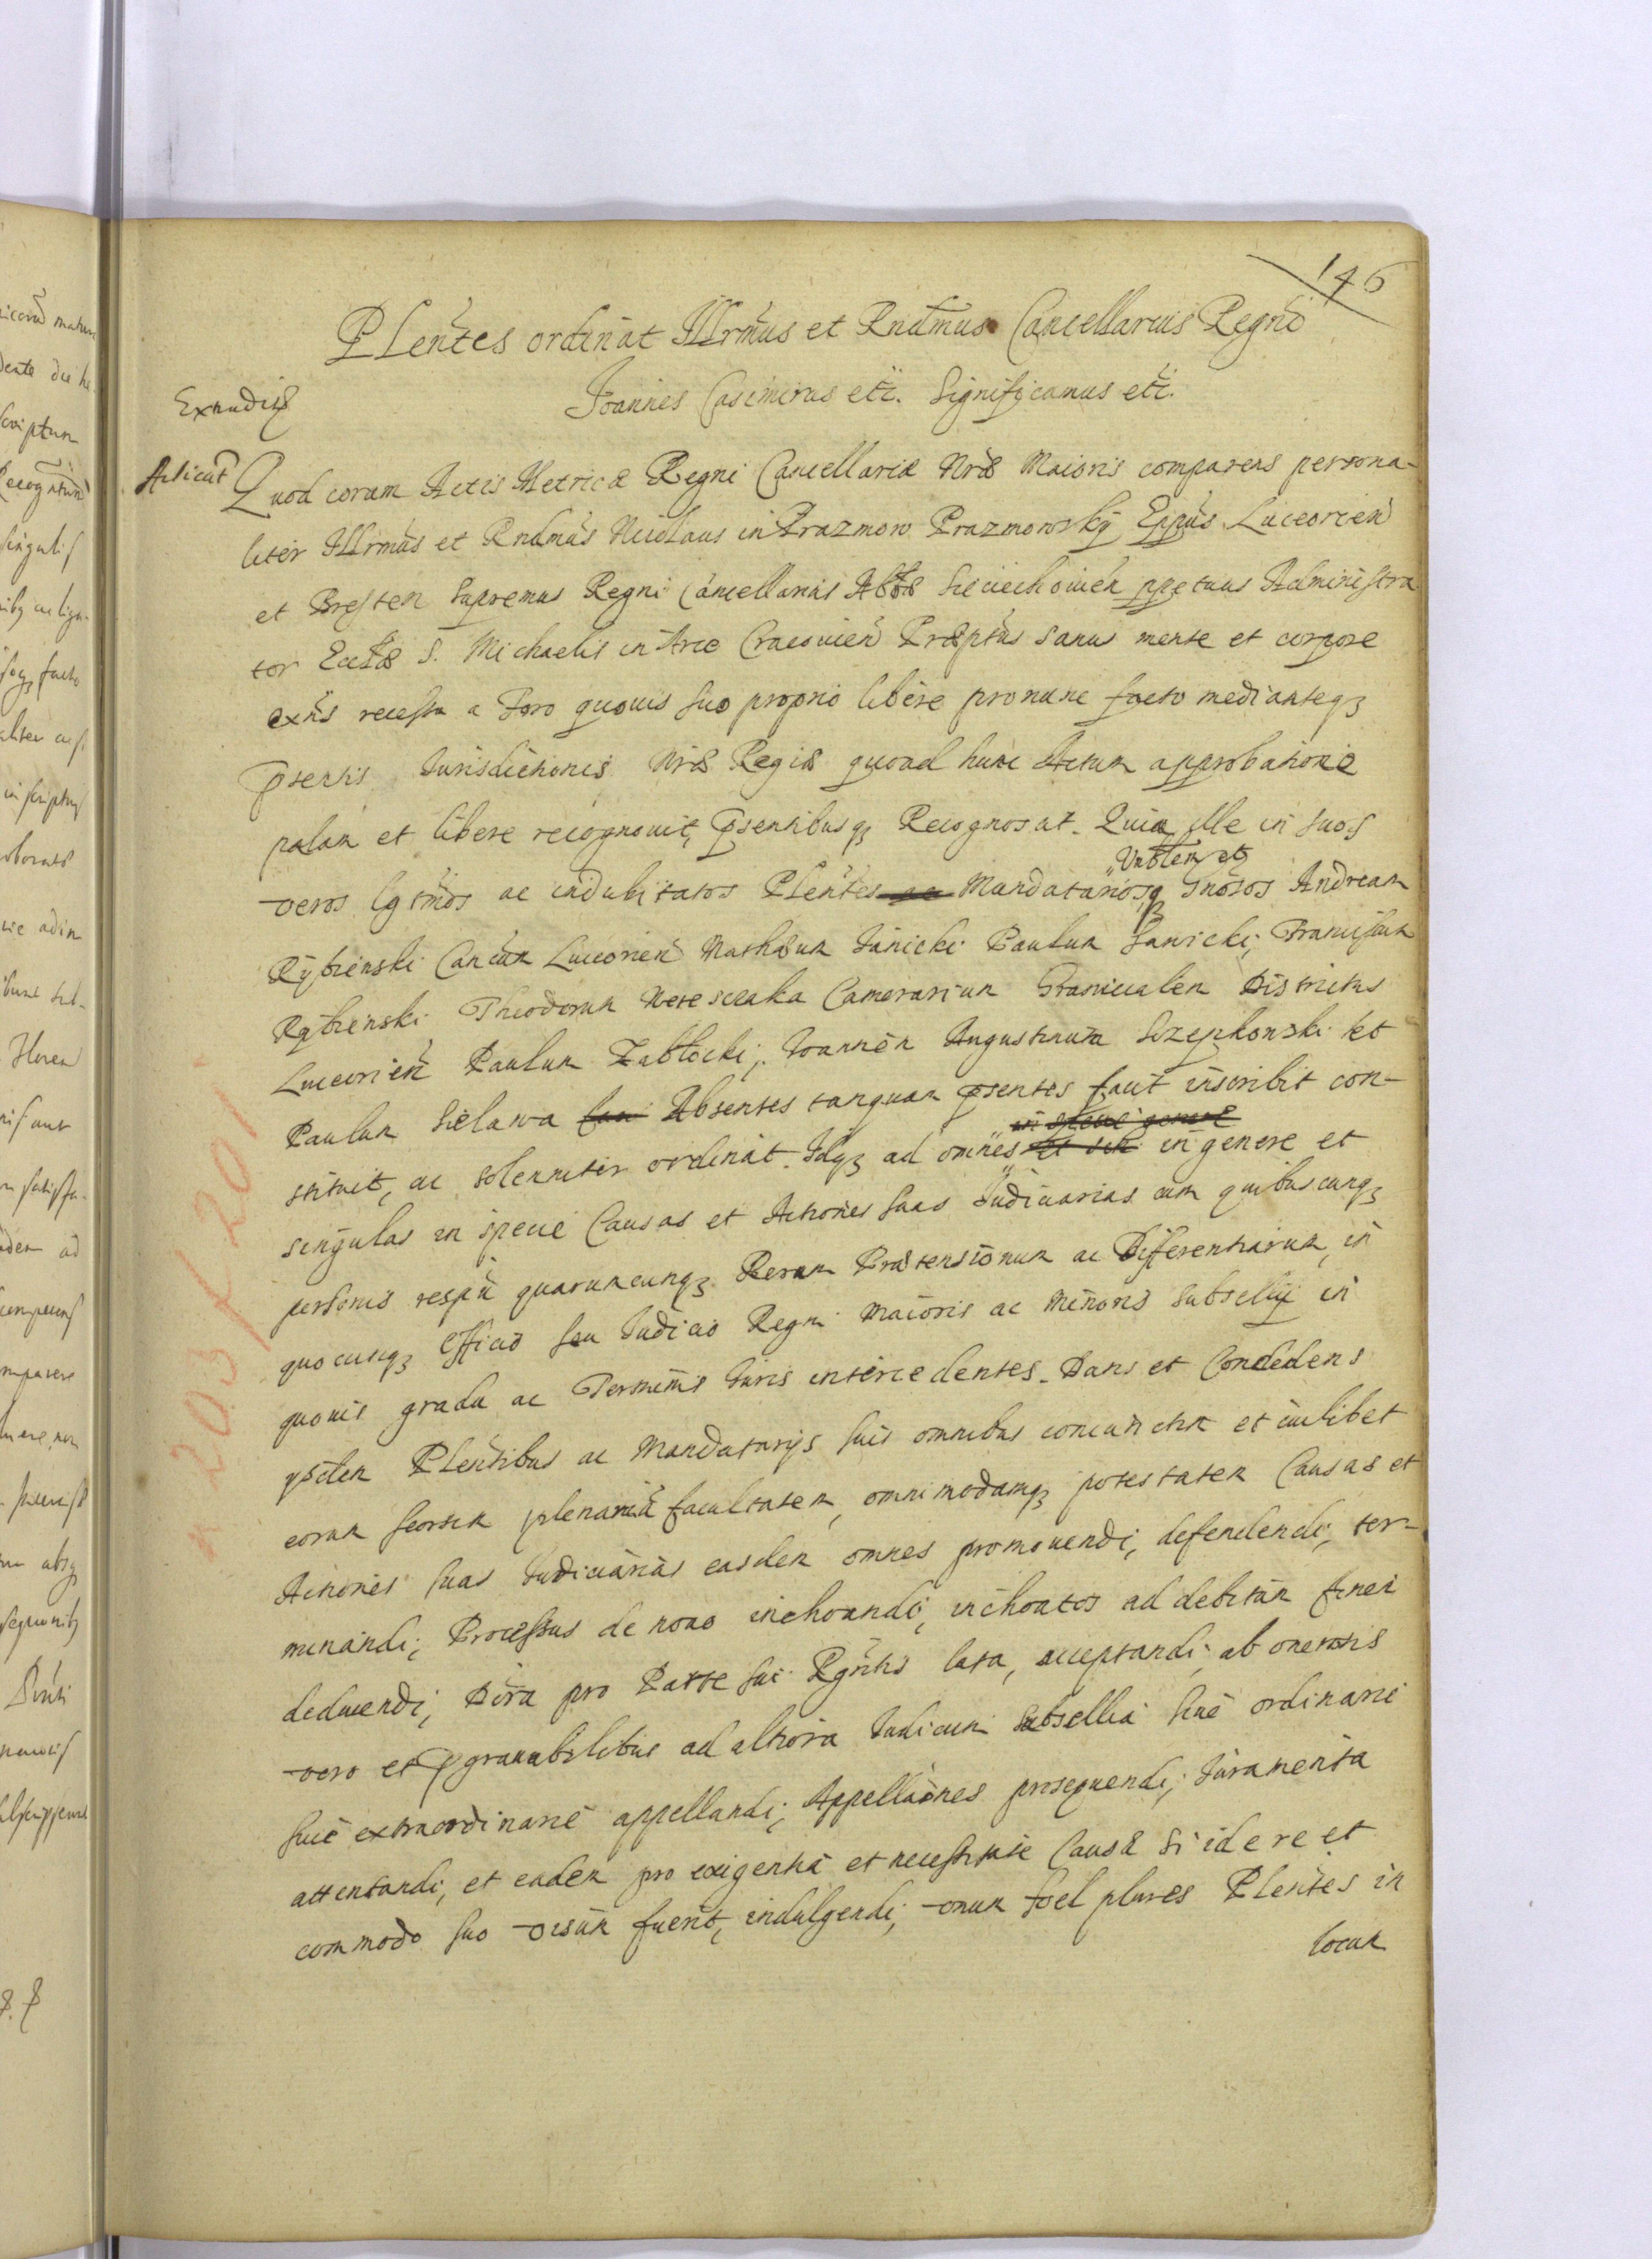 146
Plentes ordinat Illrmus et Rndmus Cancellarius Regni
Joannes Casimirus etc. Significamus etc.
Quod coram Actis Metricæ Regni Cancellariæ Nræ Maioris comparens persona-
liter Illrmus et Rndmus Nicolaus in Prazmow Prazmowsky Eppus Luceorien
et Bresten Supremus Regni Cancellarius Abbtæ Sieciechouien ppetuus Administra
tor Eccłæ S. Michaelis in Arce Cracouien Præptus sanus mente et corpore
exns recessu a Foro quouis suo proprio libere pro nunc facto medianteq
psentis Iurisdictionis Nræ Regiæ quoad hunc Actum approbatione
palam et libere recognouit, psentibusq Recognoscat. Quia ille in suos
veros lgtmos ac indubitatos Plentes ac Mandatariosq Vnblem et Gnosos Andream
Rybienski Cancum Luceorien Mathæum Janicki Paulum Janicki, Franciscum
Rybienski Theodorum Wereszczaka Camerarium Granicialem Districtus
Luceorien Paulum Zabłocki, Joannem Augustinum Szczepkowski et
Paulum Sielawa Absentes tanquam psentes facit inscribit con-
stituit, ac solenniter ordinat. Idq ad omnes et sin in specie genere in genere et
singulas in specie Causas et Actiones suas Iudiciarias cum quibuscunq
personis respu quaruncunq Rerum Prætensionum ac Differentiarum, in
quocunq Officio seu Iudicio Regni Maioris ac Minoris Subsellij in
quouis gradu ac Terminis Iuris intercedentes. Dans et Concedens
ysdem Plentibus ac Mandatarijs suis omnibus coniunctim et cuilibet
eorum seorsim plenariã facultatem, omnimodamq potestatem Causas et
Actiones suas Iudiciarias easdem omnes promouendi, defendendi, ter-
minandi, Processus de nouo inchoandi, inchoatos ad debitum finem
deducendi, Dcta pro Parte sui Pgntis lata, acceptandi, ab onerosis
vero et pgrauabilibus ad altiora Iudicum Subsellia siue ordinarie
siue extraordinarie appellandi, Appellaones prosequendi, Iuramenta
attentandi, et eadem pro exigentia et necessitate Causæ si id e re et
commodo suo visum fuerit, indulgendi, vnum vel plures Plentes in
locum